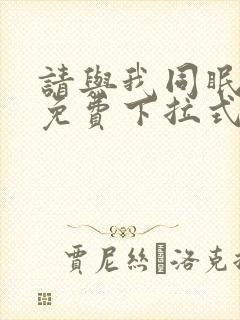 請與我同眠
免費下拉式
賈尼絲�洛克